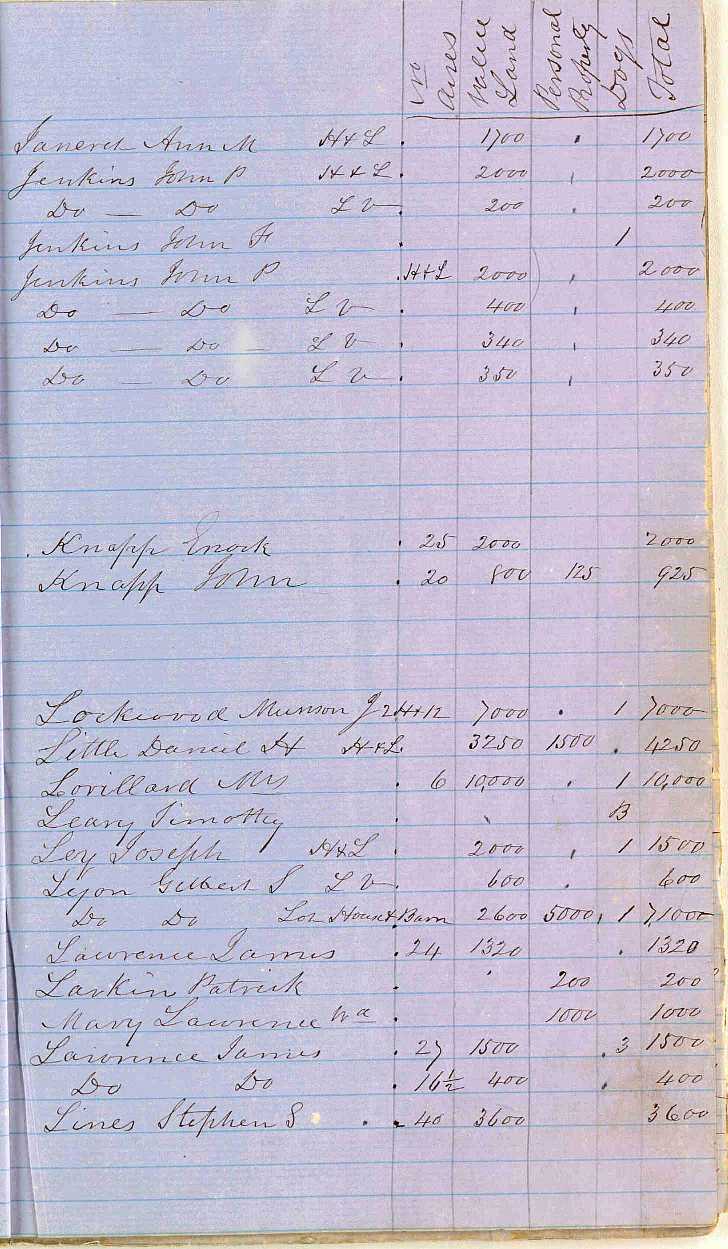 No Acres Value Land Personal Property Dogs Total
Janeret Ann M H+L . 1700 . 1700
Jenkins John P H+L . 2000 , 2000
Do — Do L V . 200 . 200
Jenkins John F . 1
Jenkins John P . H+L 2000 , 2000
Do — Do L V . 400 , 400
Do — Do — L V . 340 , 340
Do — Do L V . 350 , 350
. Knapp Enock . 25 2000 2000
Knapp John . 20 800 125 925
Lockwood Munson J 2H+12 7000 . 1 7000
Little Daniel H H+L. 3250 1500 . 4250
Lorillard Mrs . 6 10,000 . 1 10,000
Leary Timothy . B
Ley Joseph H+L . 2000 , 1 1500
Lyon Gilbert S L V . 600 . 600
Do Do Lot House + Barn 2600 5000 , 1 7,1000
Lawrence James . 24 1320 . 1320
Larkin Patrick . 200 200
Mary Lawrence . 1000 1000
Lawrence James . 27 1500 . 3 1500
Do Do . 16½ 400 . 400
Lines Stephen S . . 40 3600 3600